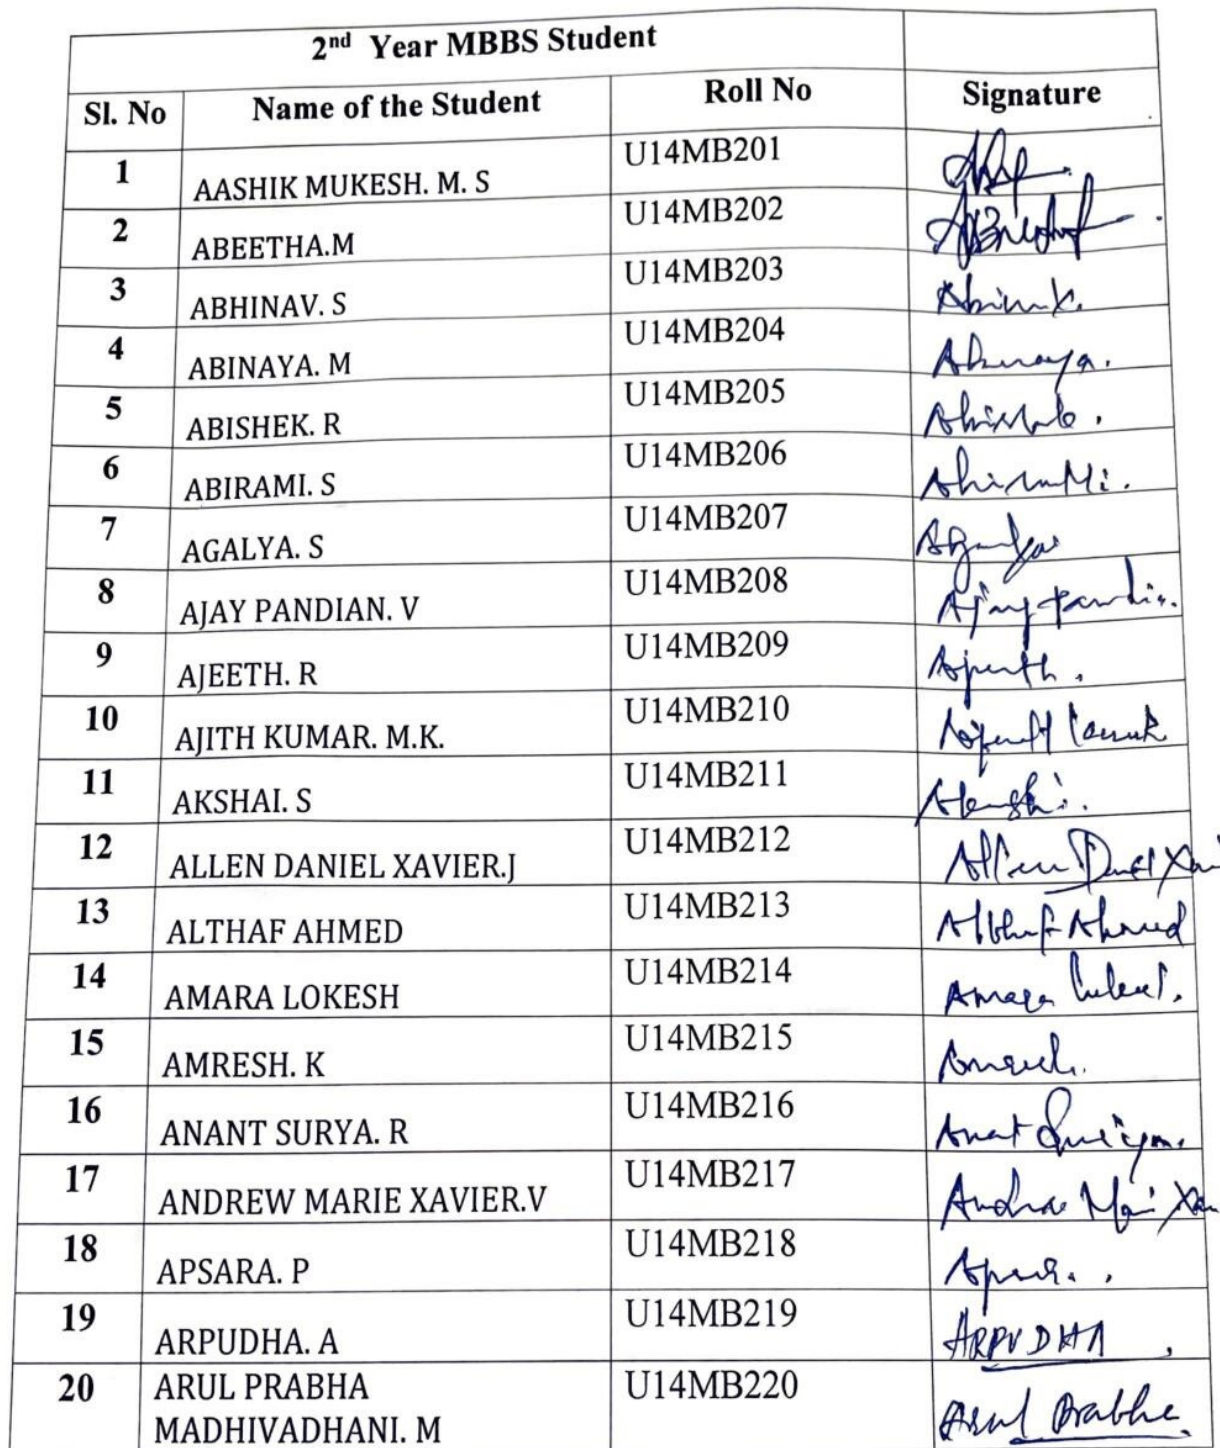 2nd Year MBBS Student
Sl. No Name of the Student Roll No Signature
1 AASHIK MUKESH. M. S U14MB201
2 ABEETHA.M U14MB202
3 ABHINAV. S U14MB203
4 ABINAYA. M U14MB204 Abinaya.
5 ABISHEK. R U14MB205
6 ABIRAMI. S U14MB206
7 AGALYA. S U14MB207 Agalya
8 AJAY PANDIAN. V U14MB208 Ajay
9 AJEETH. R U14MB209 Ajeeth.
10 AJITH KUMAR. M.K. U14MB210
11 AKSHAI. S U14MB211
12 ALLEN DANIEL XAVIER.J U14MB212 Allen Daniel
13 ALTHAF AHMED U14MB213 Althaf Ahmed
14 AMARA LOKESH U14MB214 Amara
15 AMRESH. K U14MB215
16 ANANT SURYA. R U14MB216 Anat
17 ANDREW MARIE XAVIER.V U14MB217
18 APSARA. P U14MB218
19 ARPUDHA. A U14MB219 ARPUDHA
20 ARUL PRABHA U14MB220 Arul Prabha.
MADHIVADHANI. M